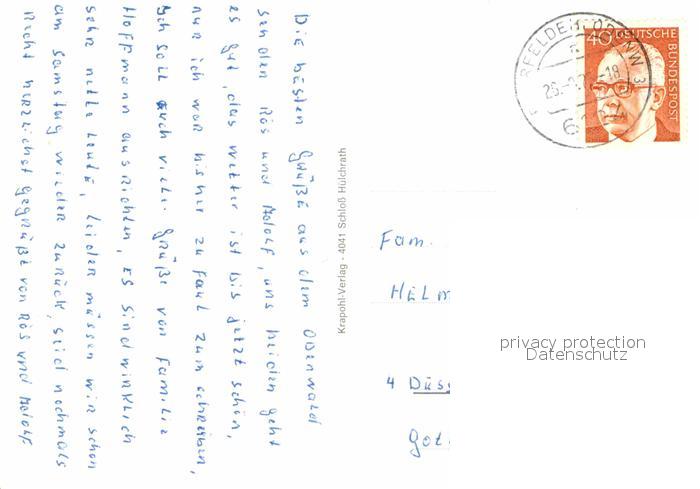 Die besten Grüße aus dem Odenwald
senden Rös und Adolf, uns beiden geht
es gut, das Wetter ist bis jetzt schön,
nur ich war bisher zu faul zum schreiben,
Ich soll Euch viele Grüße von Familie
Hoffmann ausrichten, es sind wirklich
sehr nette Leute, leider müssen wir schon
am Samstag wieder zurück, seid nochmals
recht herzlichst gegrüßt von Rös und Adolf
Krapohl-Verlag - 4041 Schloß Hülchrath
40 DEUTSCHE
BUNDESPOST
Fam.
HELM
privacy protection
Datenschutz
4 Düss
Got